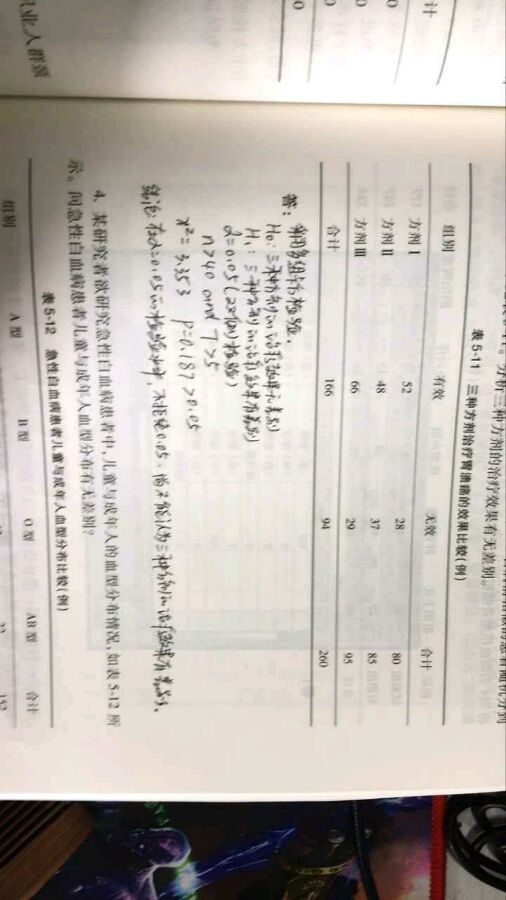 职业人群猥
计
0
0
0
分析三种方剂的治疗效果有无差别。
表 5-11 三种方剂治疗胃溃疡的效果比较(例)
组别 有效 无效 合计
方剂 I 52 28 80
方剂 II 48 37 85
方剂 III 66 29 95
合计 166 94 260
答:
H₀: 三种方剂的治疗效果无差别
H₁: 三种方剂的治疗效果有差别
α=0.05(双侧检验)
n>40 and T>5
x²=3.353 P=0.187>0.05
结论: 在α=0.05的检验水准, 不拒绝0.05. 尚不能认为三种方剂的治疗效果有差别.
4. 某研究者欲研究急性白血病患者中,儿童与成年人的血型分布情况,如表 5-12 所
示。问急性白血病患者儿童与成年人血型分布有无差别?
表 5-12 急性白血病患者儿童与成年人血型分布比较(例)
组别 A 型 B 型 O 型 AB 型 合计